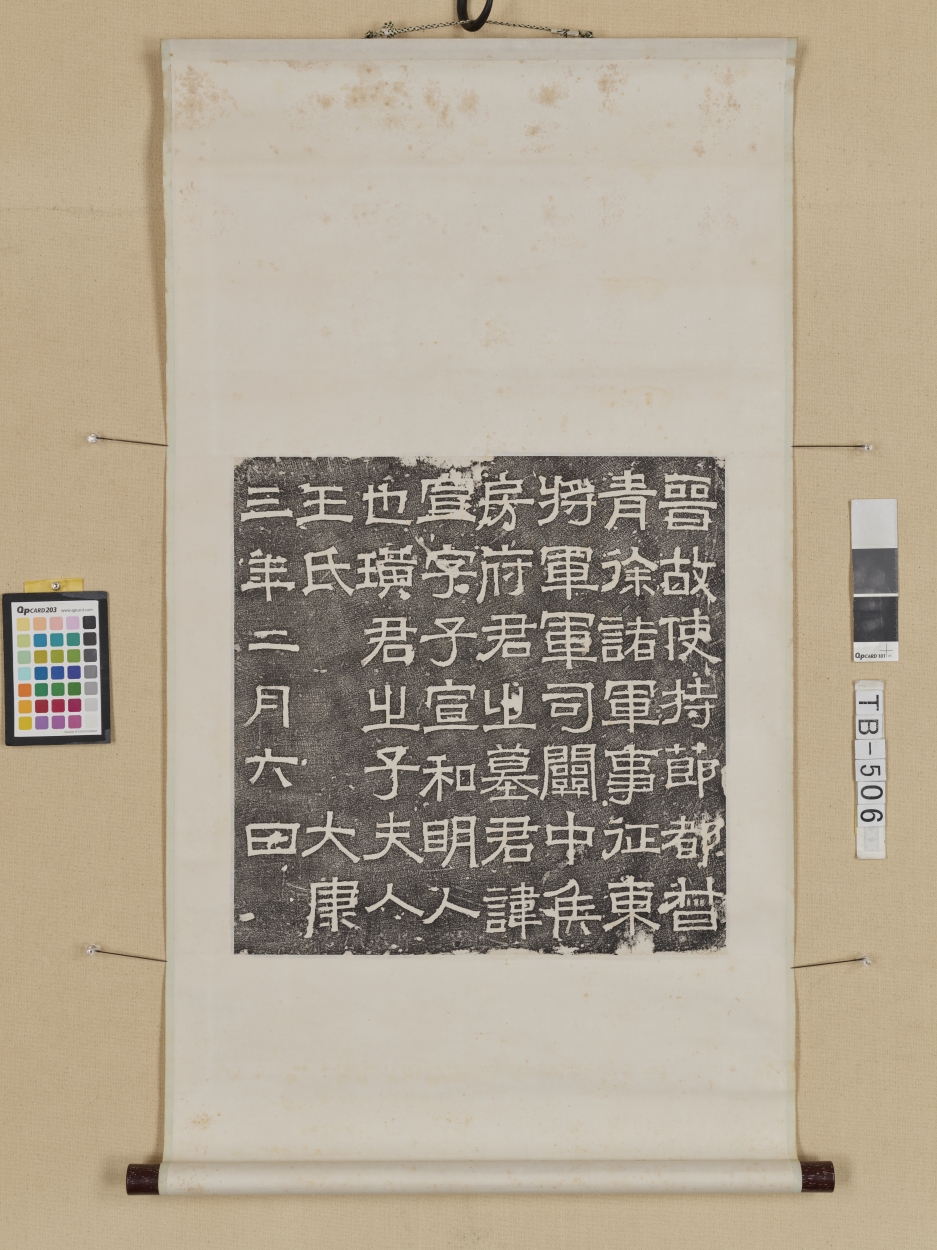 晉故使持節都督
青徐諸軍事征東
將軍軍司關中侯
房府君之墓君諱
宣字子宣和明人
也璜君之子夫人
王氏　大康
三年二月六日
QPCARD 203
QPCARD 101
TB-506